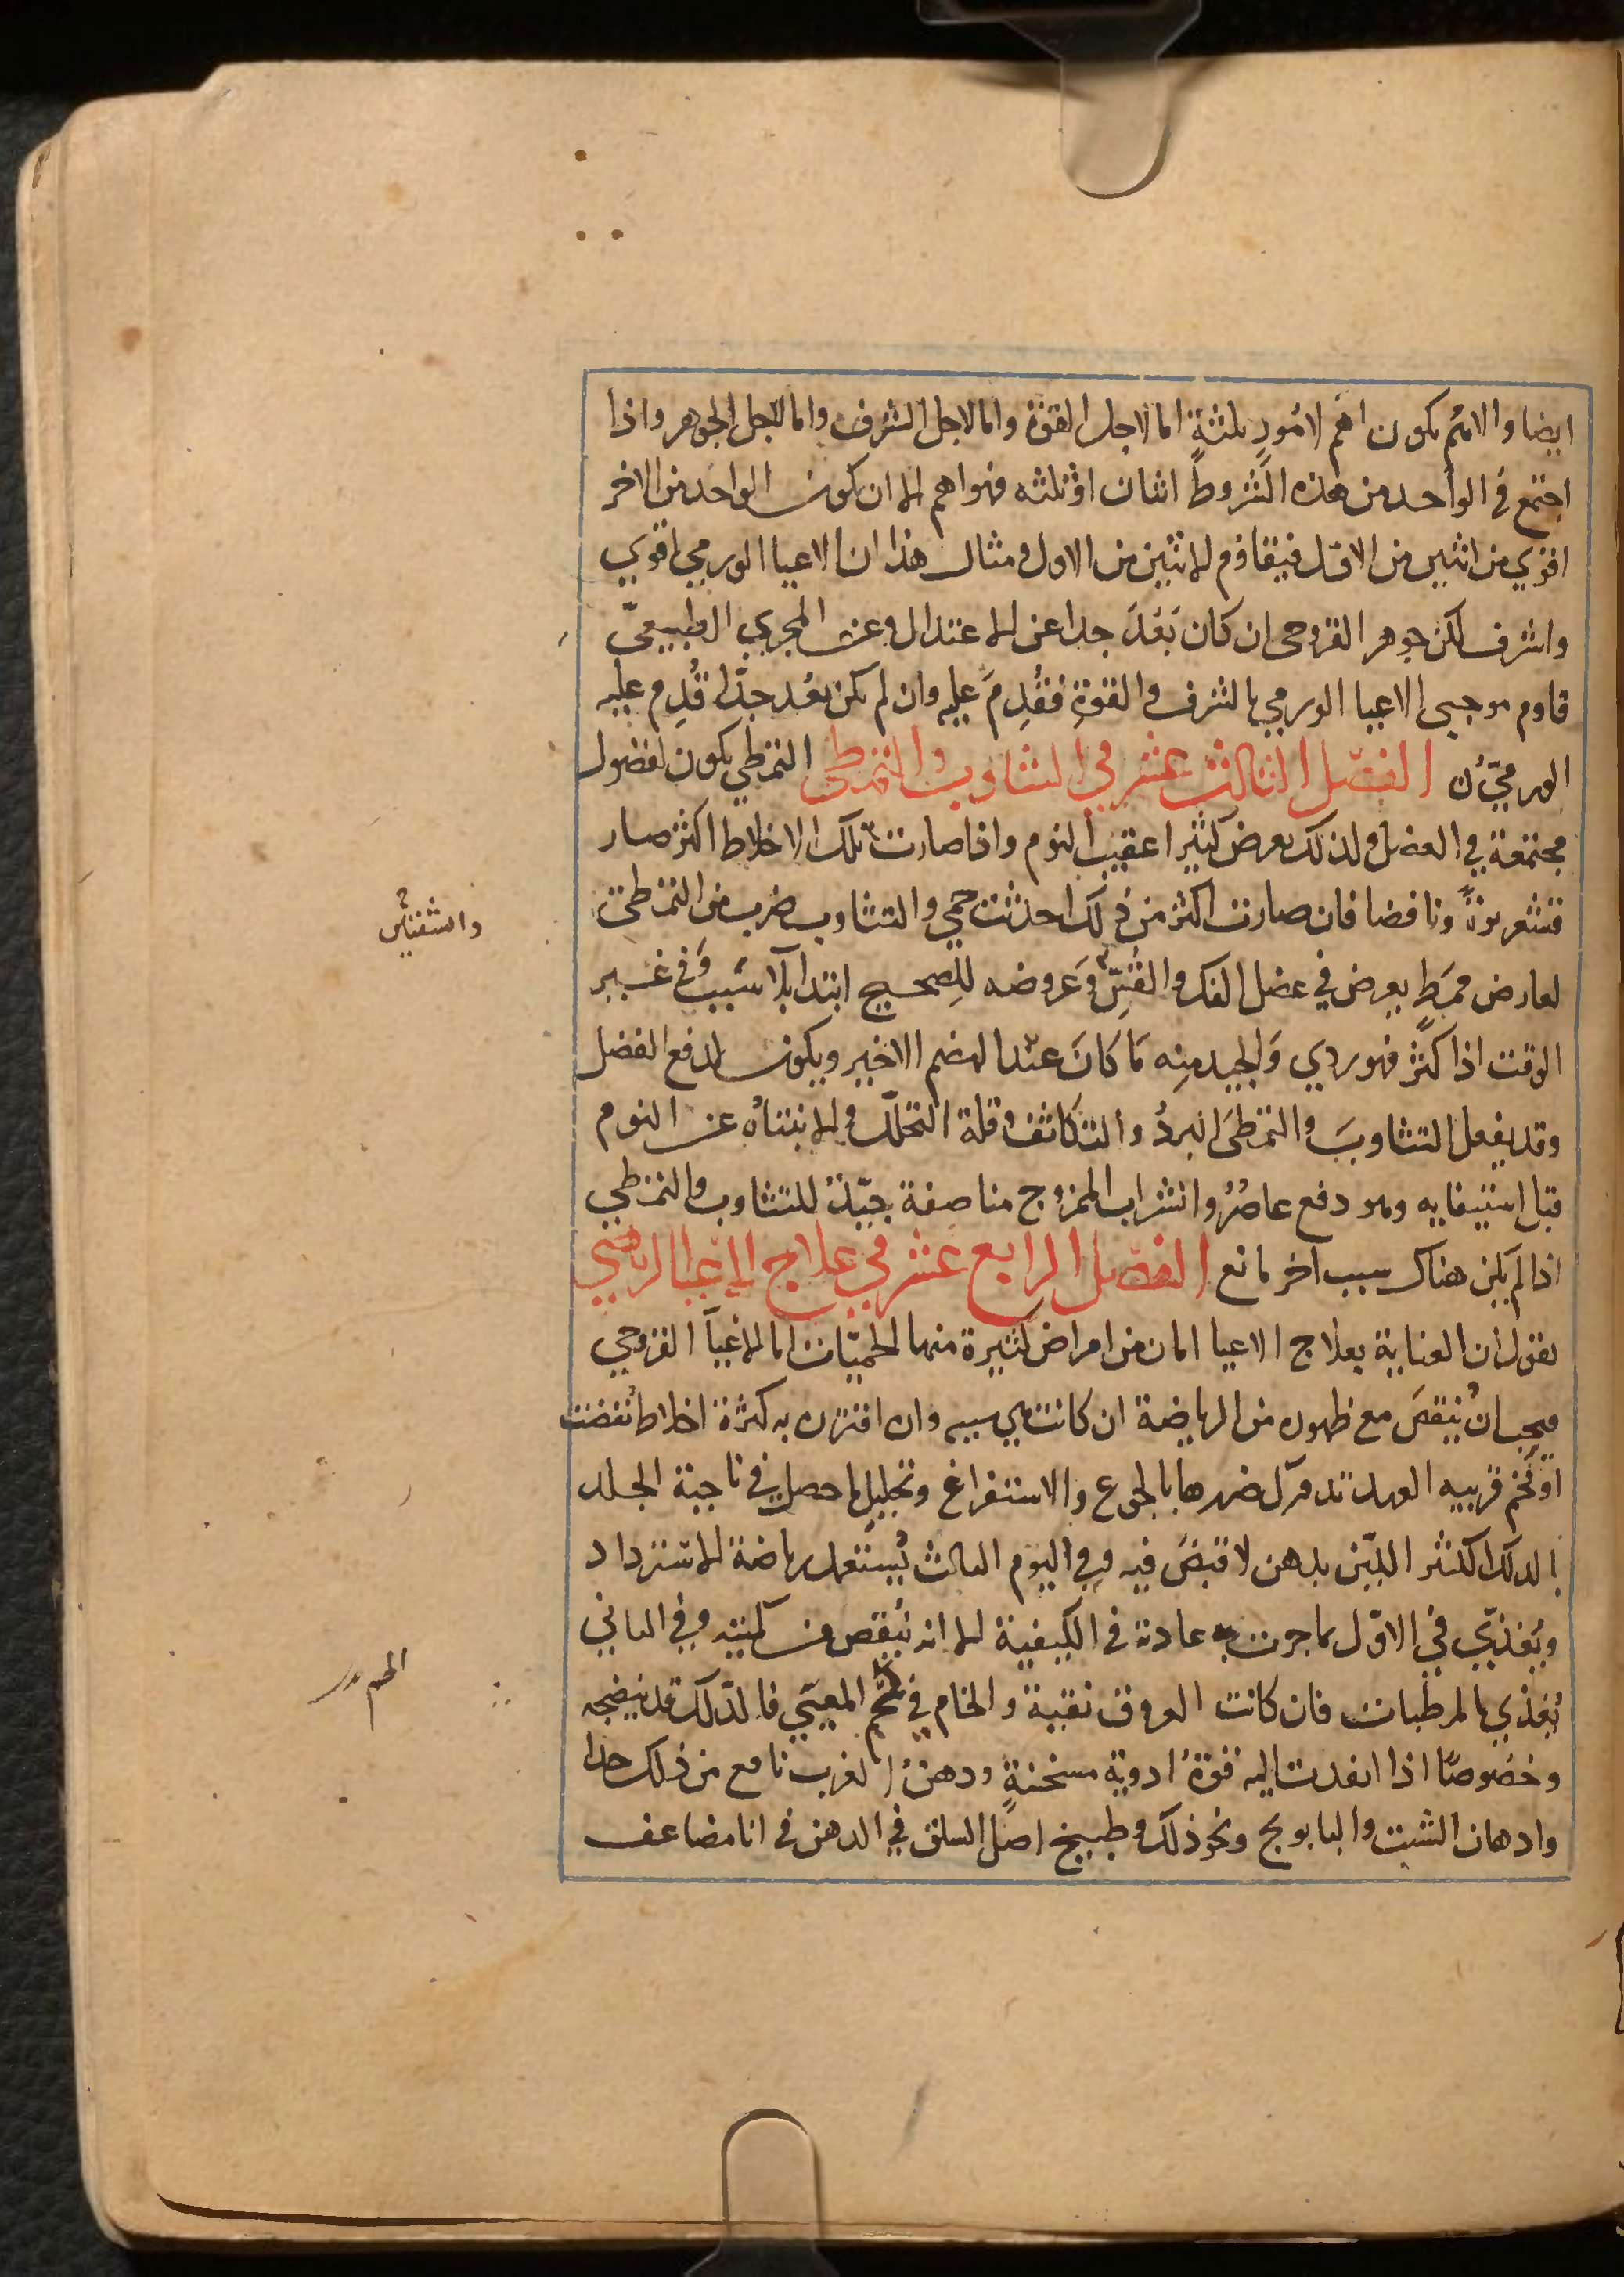 ايضا والاهم يكون اهم لامور ثلثة اما لاجل القوة واما لاجل الشرف واما لاجل الجوهر واذا
اجتمع في الواحد من هذه الشروط اثنان او ثلثه فهو اهم الا ان يكون الواحد من الاخر
اقوي من اثنين من الاول فيقاوم الاثنين من الاول ومثال هذا ان الاعيا الورمي اقوي
واشرف لكن جوهر القروحي ان كان بَعُدَ جدا عن الاعتدال وعن المجري الطبيعيّ
قاوم موجبي الاعيا الورمي بالشرف والقوةِ فقُدِمَ عليه وان لم يكن بعُد جدّا قُدِم عليه
الورميّ الفصل الثالث عشر في التثاوب والتمطي التمطي يكون لفضول
مجتمعة في العضل ولذلك يعرض كثيرا عقيب النوم واذا صارت تلك الاخلاط اكثر صار
قشعريرةً ونافضا فان صارت اكثر من ذلك احدثت حمي والتثاوب ضرب من التمطي
لعارض ممَطٍ يعرض في عضل الفك والقَسّ وَعروضه للِصحيح ابتدا بلا سَبب وَفي غير
الوقت اذا كثرً فهو ردي وَالجيد مِنِه مَا كاَنَ عند الهضم الاخير ويكون لدفع الفضل
وقد يفعل التثاوبَ والتمطيَ البردُ والتكاثف وقلة التحلل والانتباه عن النوم
قبل استيفايه وهو دفع عاصُر والشراب الممزوج مناصفة جيّدُ للتثاوب والتمطي
اذا لَم يكن هناك سبب اخر مانع الفصل الرابع عشر في علاج الاعيا الرياضي
نقول ان العناية بعلاج الاعيا امان من امراض كثيرة منها الحميّات اما الاعيآ القروحي
فيجب انُ يُنقصَ مع ظهوره من الرياضة ان كانت هي سببه وان اقترن به كثرة اخلاط نُفضت
او تخم قريبه العهد تدورك ضررها بالجوع والاستفراغ وتحليل ما حصل في ناحية الجلد
بالدلك الكثير الليّن بدهن لا قبضَ فيه وفي اليوم الثالث يُستعمل رياضة الاسترداد
ويُغذيّ في الاوّل بما جرت به عادته في الكيفية الا انه يُنقص من كميّته وفي الثاني
يُغذي بالمرطبات فان كانت العروق نقية والخام في المعيّي فالدّلك قد ينضجه
وخصُوصًا اذا انفدت اليه قوةُ ادوية مسخنةٍ ودهنُ الغرب نافع من ذلك جدا
وادهان الشبت والبابونج ونحو ذلك وطبيخ اصلُ السلق في الدهن في انا مضاعف
والشفتين